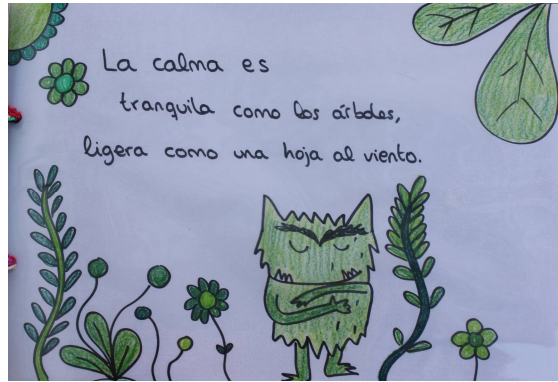 La calma es
tranquila como los árboles,
ligera como una hoja al viento.